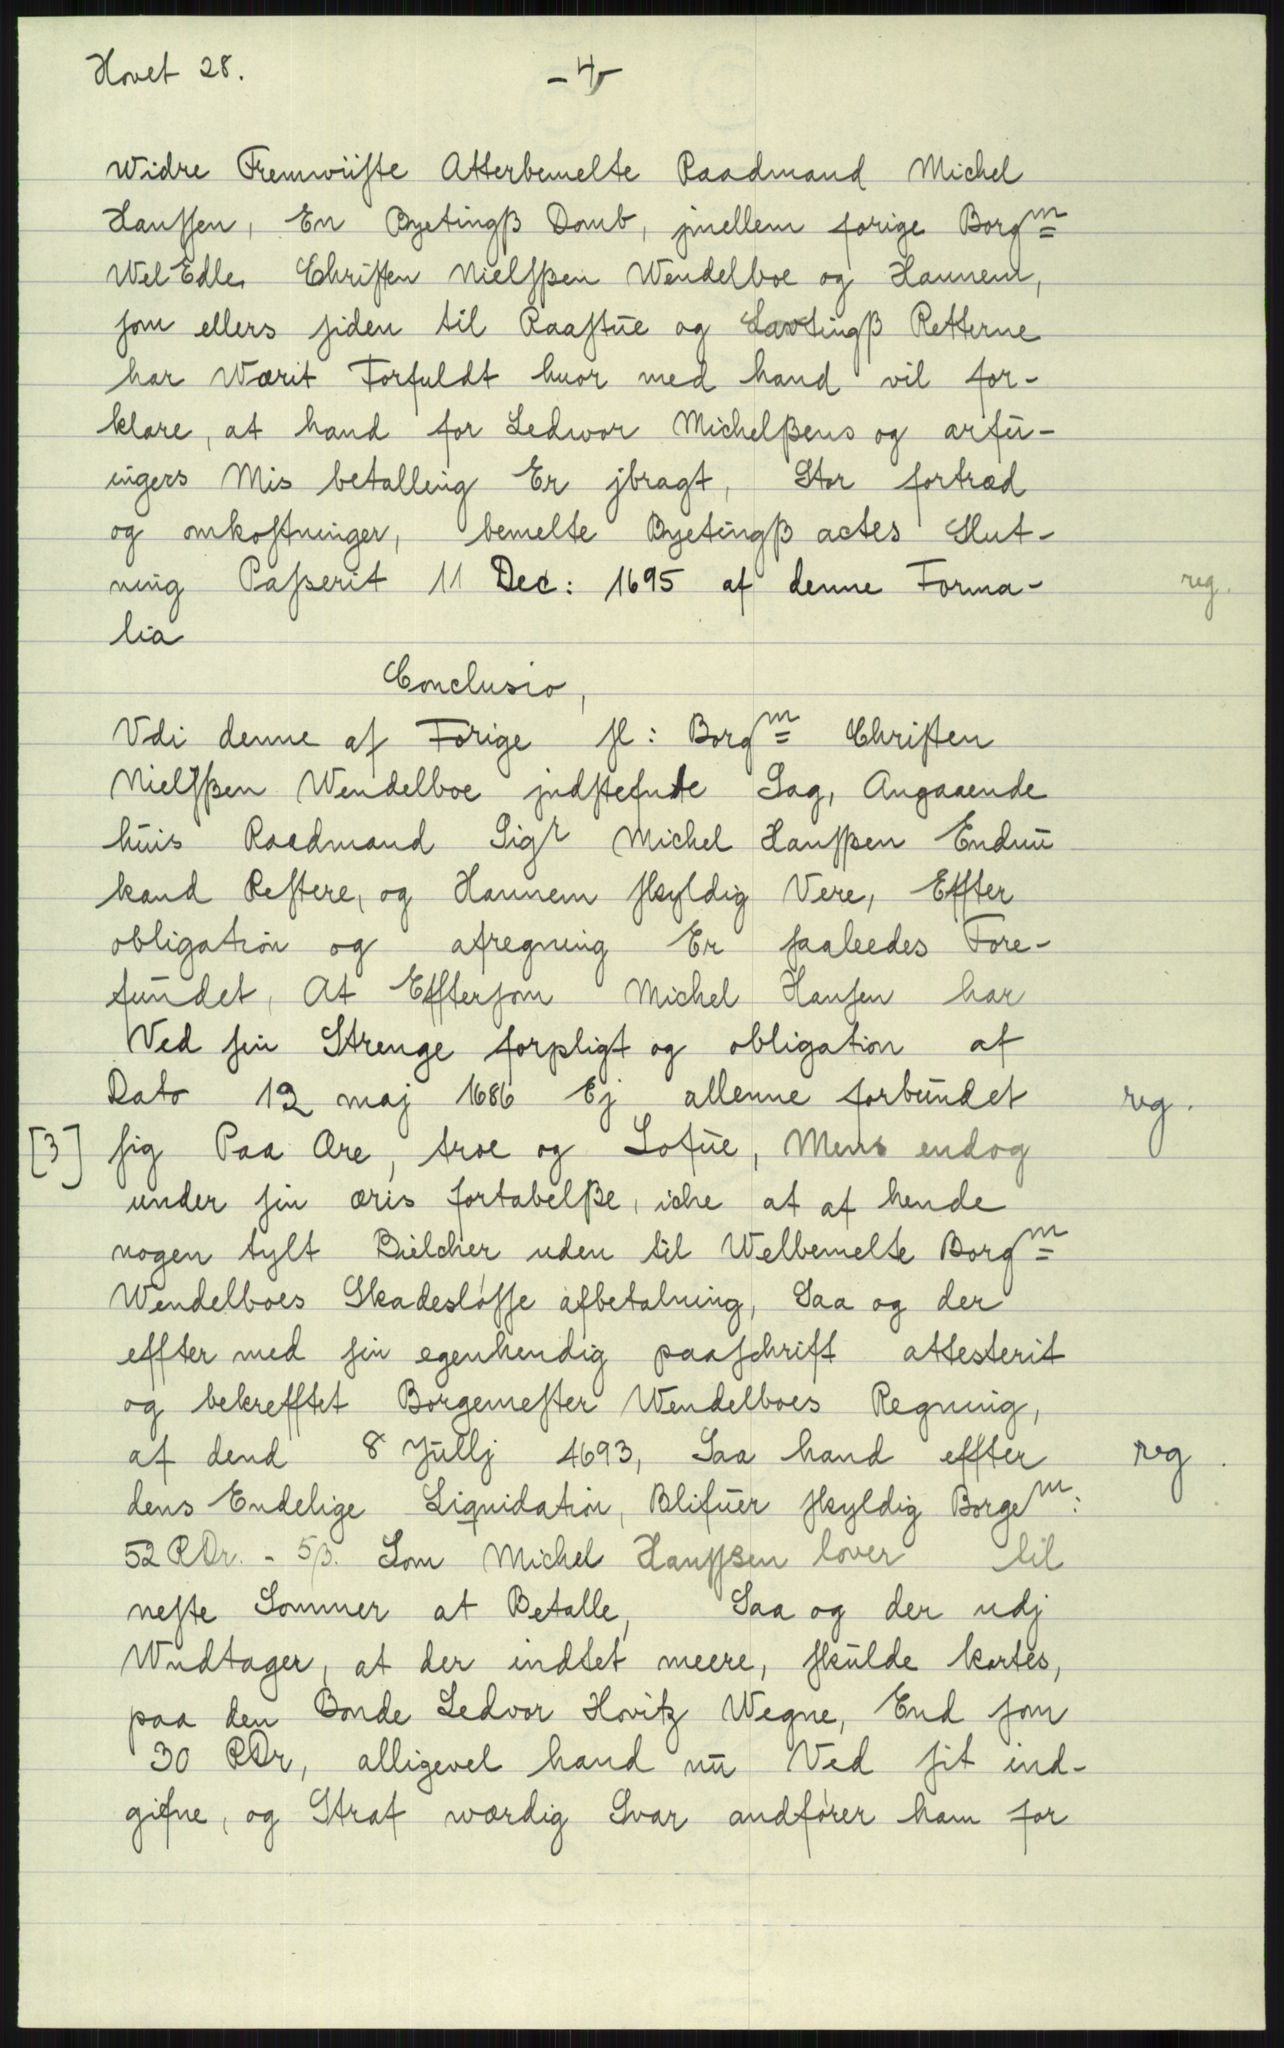 Hovet 28.
- 4 -
Widre Fremwiiste Atterbemelte Raadmand Michel
Hanssen, En Byetingß Domb, jmellem forige Borgm
Wel Edle Christen Nielsßen Wendelboe og Hannem,
som ellers siden til Raastue og Lavtingß Retterne
har Wærit Forfuldt huor med hand vil for-
klare, at hand for Ledwor Michelßens og arfu-
ingers Mis betalling Er jbragt, Stor fortræd
og omkostninger, bemelte Byetingß actes Slut-
ning Passerit 11 Dec: 1695 af denne Forma-
reg.
lia
Conclusio,
Vdi denne af Forige sl: Borgm Christen
Nielsßen Wendelboe jndstefnde Sag, Angaaende
huis Raadmand Sigr Michel Hansßen Endnu
kand Restere, og Hannem skyldig Vere, Effter
obligation og afregning Er saaleedes Fore-
fundet, At Efftersom Michel Hansen har
Ved sin Strenge forpligt og obligation af
Dato 12 maj 1686 Ej allenne forbundet
reg.
[3] sig Paa Ære, troe og Lofue, Mens endog
under sin æris fortabelße, iche at af hende
nogen tylt Bielcher uden til Welbemelte Borgm
Wendelboes Skadesløsse afbetalning, Saa og der
effter med sin egenhendig paaschrift attesterit
og bekrefftet Borgemester Wendelboes Regning,
af dend 8 Jullj 1693, Saa hand effter
reg.
dens Endelige Liqnidation, Blifuer skyldig Borgem:
52 RDr. - 5 ß. Som Michel Hansßen lover til
neste Sommer at Betalle, Saa og der udj
Wndtager, at der indtet meere, skulde kortes,
paa den Bonde Ledvor Hovitz Wegne, End som
30 RDr, alligevel hand nu Ved sit ind-
gifne, og Straf wærdig Svar andfører ham for